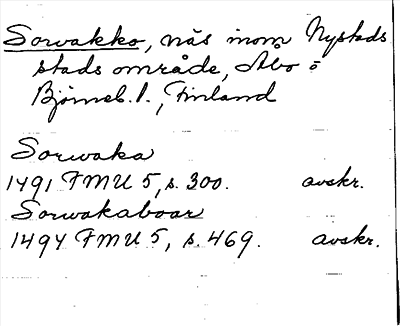 Sorwakko, näs inom Nystads
stads område, Åbo o
Björneb. l., Finland
Sorwaka
1491 FMU 5, s. 300. avskr.
Sorwakaboar
1494 FMU 5, s. 469. avskr.